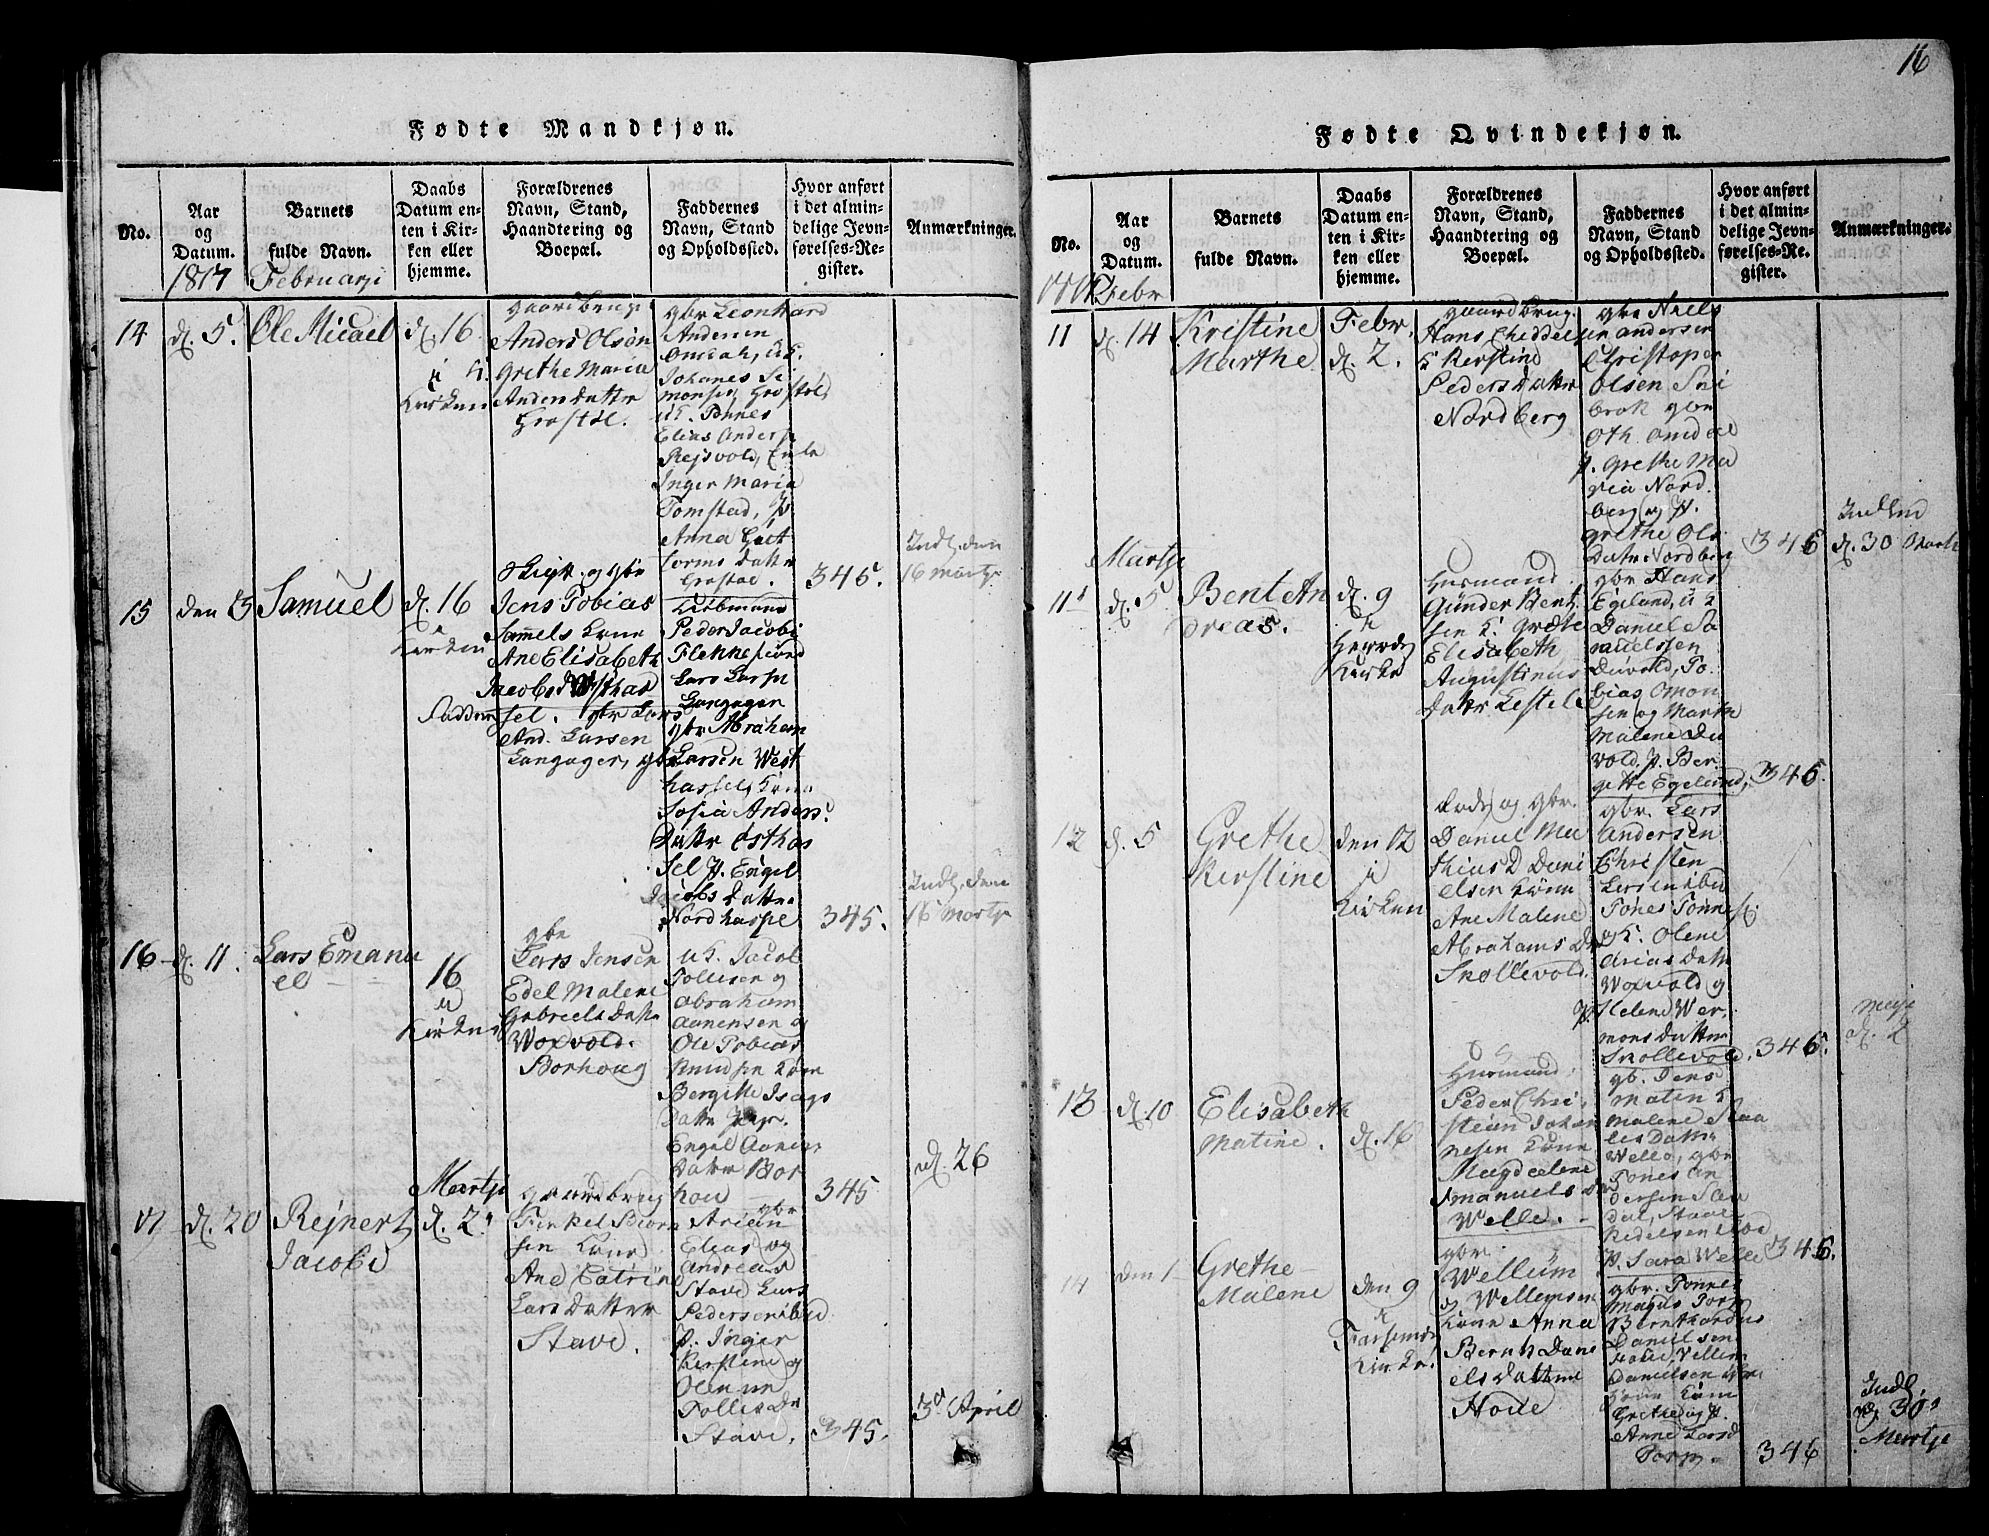 16
Fødte Mandkjøn.
No.
Aar
og
Datum.
1817
Barnets
fulde Navn.
Februarji
Daabs
Datum en-
ten i Kir-
ken eller
hjemme.
Forældrenes
Navn, Stand,
Haandtering og
Boepæl.
Faddernes
Navn, Stand
og Opholdssted.
Hvor anført
i det almin-
delige Jevn-
førelses-Re-
gister.
Anmærkninger.
14
d. 5.
Ole Micael
d. 16
i
Kirken
gaardbrug.
Anders Olsøn
Grethe Maria
Andersdattr
Grostøl.
gbr Leonhard
Andersen
Omdah, uk.
Johanes Si
monsen, Grostøl
uk. Tønnes
Elias Anders
Rejsvold,
Inger Maria
Tomstad, P
Anna Gut
torms dattr
Grostøl.
345.
Indl. den
16 Martji
15
den 3
Samuel
d. 16
i
Kirken
Skipr. og gbr
Jens Tobias
Samuels kone
Ane Elisabeth
Jacobsd Østhas
sel. gbr Lars
And. Larsen
Langager, gbr
Faddere
Peder Jacobs
Flekkesund
Lars Larsen
Langager
gbr Abraham
Larsen West
hassel, kone
Sofia Anders
Dattr Østhas
sel P. Engel
Jacobs dattr
Nordhassel
345.
Indl. den
16 Martji
16
d. 11.
Lars Emanu
el
16
i
Kirken
gbr
Lars Jensen
Edel Malene
Gabriels Datr
Woxvold.
Borhoug
uk. Jacob
Tollisen og
Abraham
Aanensen og
Ole Tobias
Knudsen kone
Bergitte Isags
Datter
Engel Aanens
datr Bor
hou
345
d. 26
17
d. 20
Rejnert
Jacobe
Martji
d. 2
gaardbrug
Terkel Biørn
sen kone
Ane Catrine
Lars datter
Stave.
gbr
Arian
Elias og
Andreas
Stave Lars
Pedersen ibid
P. Inger
Kirstine og
Olene
Tollis Dr
Stave.
345.
3 April
Fødte Qvindekjøn.
No.
Aar
og
Datum.
Febr
Barnets
fulde Navn.
Daabs
Datum en-
ten i Kir-
ken eller
hjemme.
Forældrenes
Navn, Stand,
Haandtering og
Boepæl.
Faddernes
Navn, Stand
og Opholdssted.
Hvor anført
i det almin-
delige Jevn-
førelses-Re-
gister.
Anmærkninger.
11
d. 14
Kristine
Marthe
Febr.
d. 2.
gaardbrug.
Hans
k Kerstine
Peders Dattr
Nordberg
gbr Niels
Andersen
Christoper
Olsen Sni
brok gbr
Oth Omdal
P. Grethe Ma
ria Nord
berg og P.
Grethe Ols
Datr Nordberg
346
d. 30 Martji
11
Martji
d. 5
Bent An
dreas.
d. 9
i
Herred
Kirke
Husmand
Gunder Bent
sen k. Grete
Elisabeth
Augustinus
datr Lestel
gbr Hans
Egeland, u k
Daniel Sa
muelssen
Duvold, To
bias Omon
sen og Marth
Malene Du
vold, P. Ber
gette Egeland,
346.
12
d. 5
Grethe
Kerstine
den 12
i
Kirken
og gbr.
Daniel Ma
thias D Dani
elsen kone
Ane Malene
Abrahams D
Snollevold.
gbr. Lars
Andersen
Christen
Larsen ibd
Tønes Tønnes
og k. Olene
Arias datr
Woxvold og
P. Helene Wer
mons datter
Snollevold.
346.
Maji
d. 2
13
d. 10
Elisabeth
Matine.
d. 16
Husmand
Peder Chri
stian Johan
nesen kone
Magdalene
Emanuels d
Welle.
gb. Jens
Maten k
Malene Staa
les Datr
Welle, gbr
Tønes An
dersen Sau
dal, Staale
P. Sara Welle
346.
14
den 1
Grethe
Malene
den 9
i
Farsunds
Kirke
gbr
Wellum
Wellemsen
kone Anna
Bernh Dani
els Datter
Hoile
gbr. Tønnes
Mads Torp
Bernthardus
Danielsen
Hoile, Vellem
Danielsen
kone
Grethe og P.
Anne Larsd
Torp.
346
Indl.
d. 30
Martji